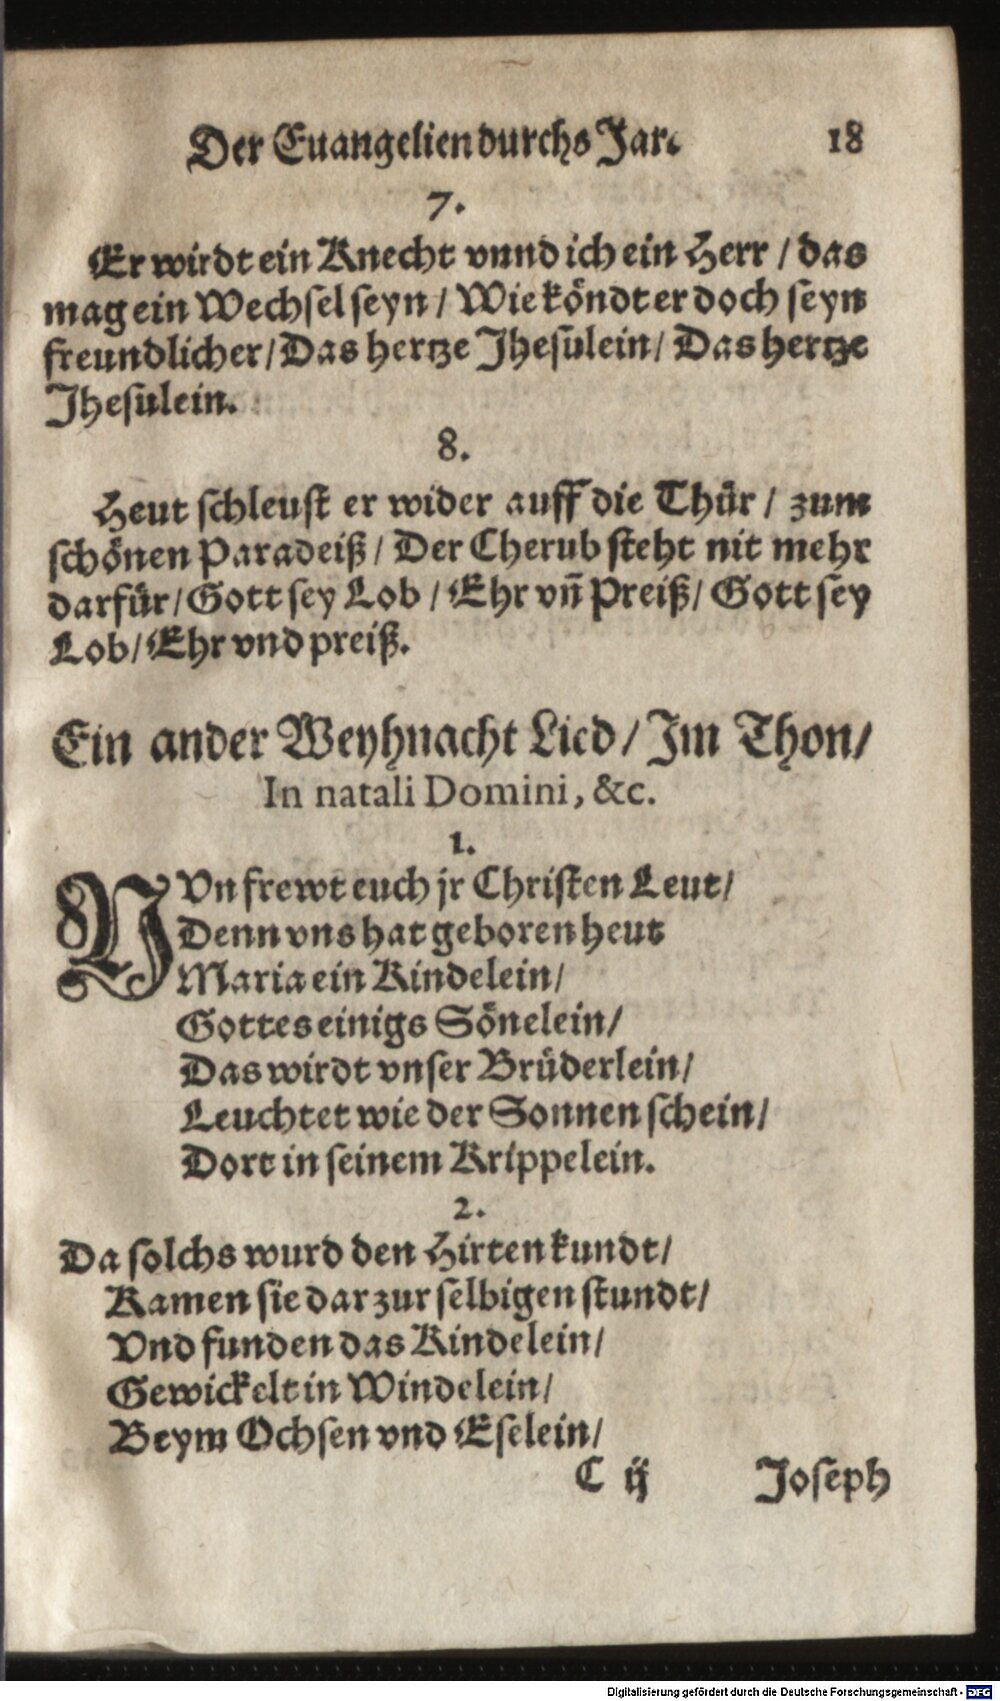 Der Euangelien durchs Jar. 18
7.
Er wirdt ein Knecht vnnd ich ein Herr / das
mag ein Wechsel seyn / Wie köndt er doch seyn
freundlicher / Das hertze Jhesulein / Das hertze
Jhesulein.
8.
Heut schleust er wider auff die Thür / zum
schönen Paradeiß / Der Cherub steht nit mehr
darfür / Gott sey Lob / Ehr vñ Preiß / Gott sey
Lob / Ehr vnd preiß.
Ein ander Weyhnacht Lied / Im Thon /
In natali Domini, &c.
1.
NVn frewt euch jr Christen Leut /
Denn vns hat geboren heut
Maria ein Kindelein /
Gottes einigs Sönelein /
Das wirdt vnser Brüderlein /
Leuchtet wie der Sonnen schein /
Dort in seinem Krippelein.
2.
Da solchs wurd den Hirten kundt /
Kamen sie dar zur selbigen stundt /
Vnd funden das Kindelein /
Gewickelt in Windelein /
Beym Ochsen vnd Eselein /
C ij Joseph
Digitalisierung gefördert durch die Deutsche Forschungsgemeinschaft - DFG